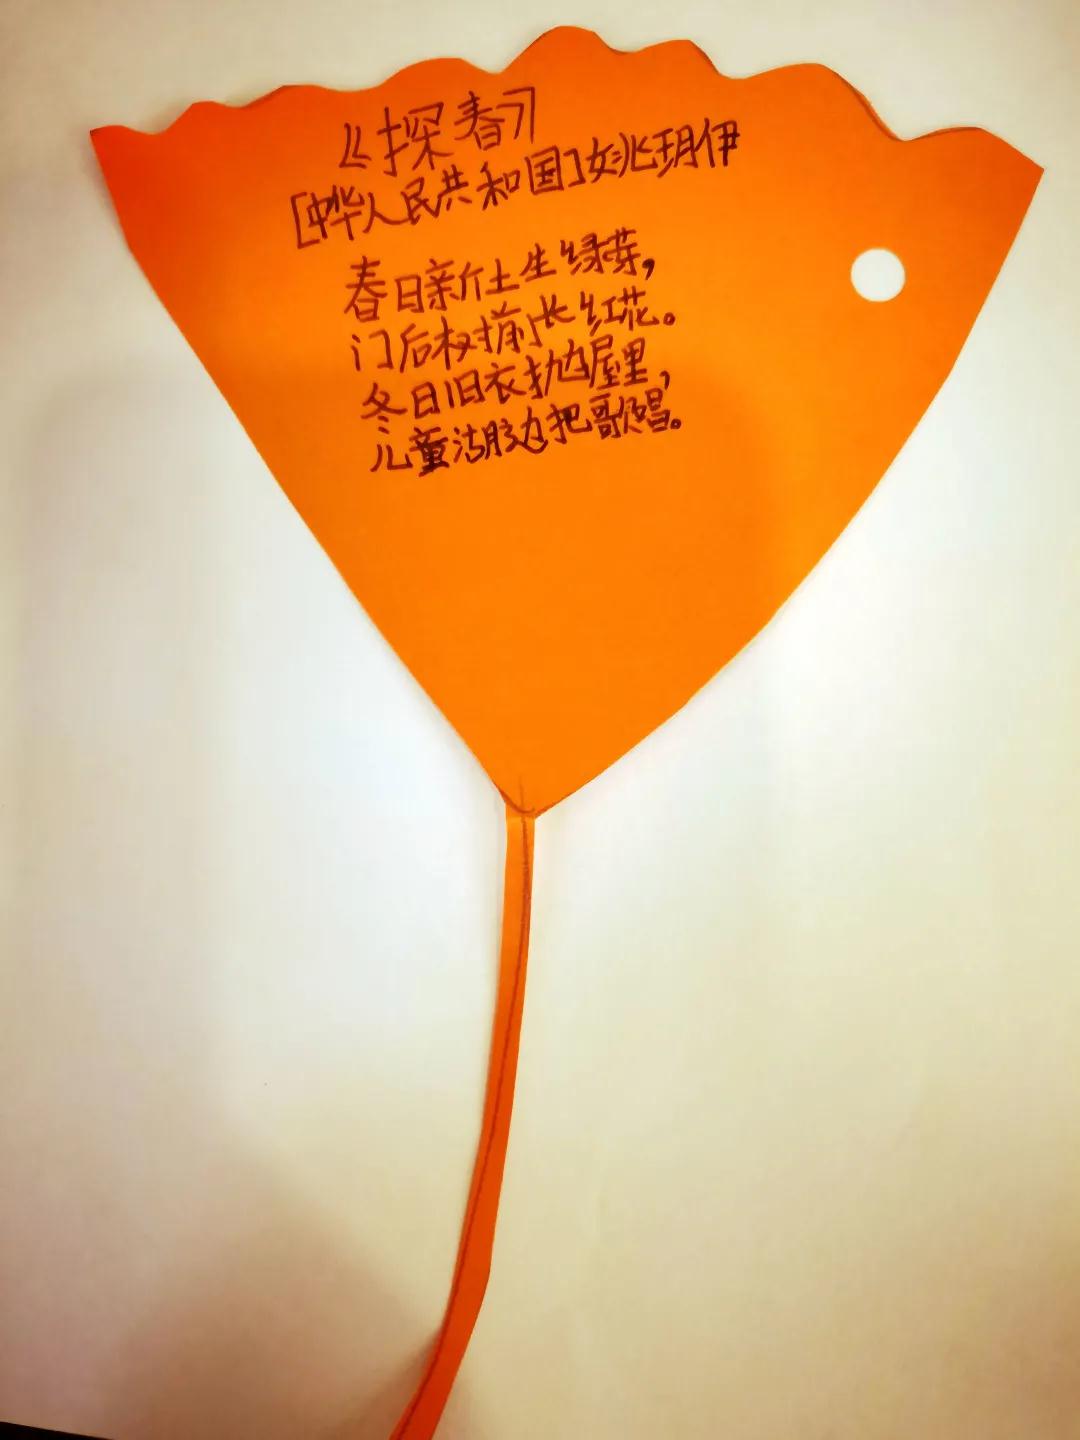 《探春》
[中华人民共和国]姚玥伊
春日新土生绿芽，
门后权摘长红花。
冬日旧衣抛屋里，
儿童湖边把歌唱。